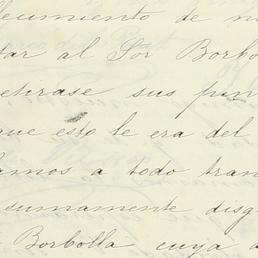 llecimiento de m
tar al Sor Borbo
etirase sus pun
que esto le era del
lamos a todo tran
sumamente disg
Borbolla cuya a